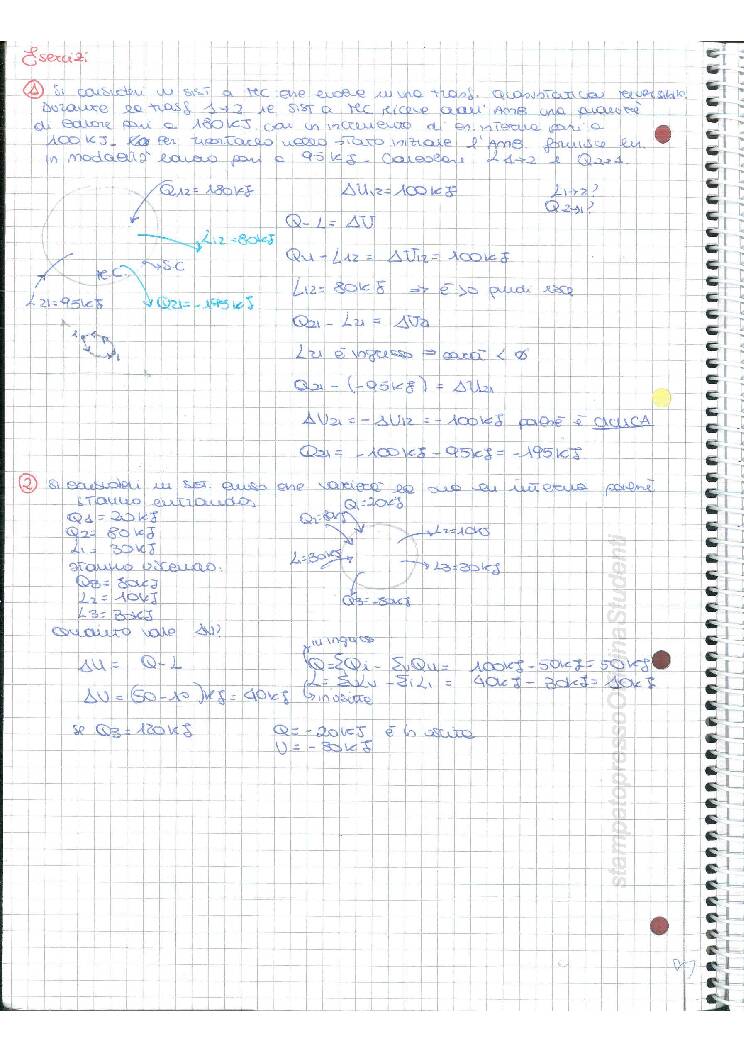 Esercizi:
① Si consideri un sist a MC che evolve in una trasf. quasistatica reversibile.
Durante la trasf 1→2 il sist a MC riceve dall' AMB una quantità
di calore pari a 180KJ con un incremento di en. interna pari a
100 KJ. Per riportarlo nello stato iniziale l'AMB fornisce en.
in modalità lavoro pari a 95KJ. Calcolare L1→2 e Q2→1.
Q12=180KJ ΔU12=100KJ L1→2?
Q2→1?
L12=80KJ
SC
MC
L21=95KJ Q21=-195KJ
2 1
Q-L=ΔU
Q12-L12=ΔU12=100KJ
L12=80KJ ⇒ è >0 quindi esce
Q21-L21=ΔU21
L21 è ingresso ⇒ sarà <0
Q21-(-95KJ)=ΔU21
ΔU21=-ΔU12=-100KJ perché è CICLICA
Q21=-100KJ-95KJ=-195KJ
② Si consideri un sist. chiuso che varierà la sua en interna perché
stanno entrando:
Q1=20KJ
Q2=80KJ
L1=30KJ
stanno uscendo:
Q3=50KJ
L2=10KJ
L3=30KJ
Quanto vale ΔU?
Q1=20KJ
Q2=80KJ
L2=10KJ
L=30KJ
L3=30KJ
Q3=-50KJ
ΔU= Q-L
ΔU=(50-10)KJ=40KJ
in ingresso
Q=ΣQi-ΣQu= 100KJ-50KJ=50KJ
L=ΣLu-ΣLi= 40KJ-30KJ=10KJ
in uscita
se Q3=120KJ Q=-20KJ è in uscita
U=-30KJ
stampatopressoOfficinaStudenti